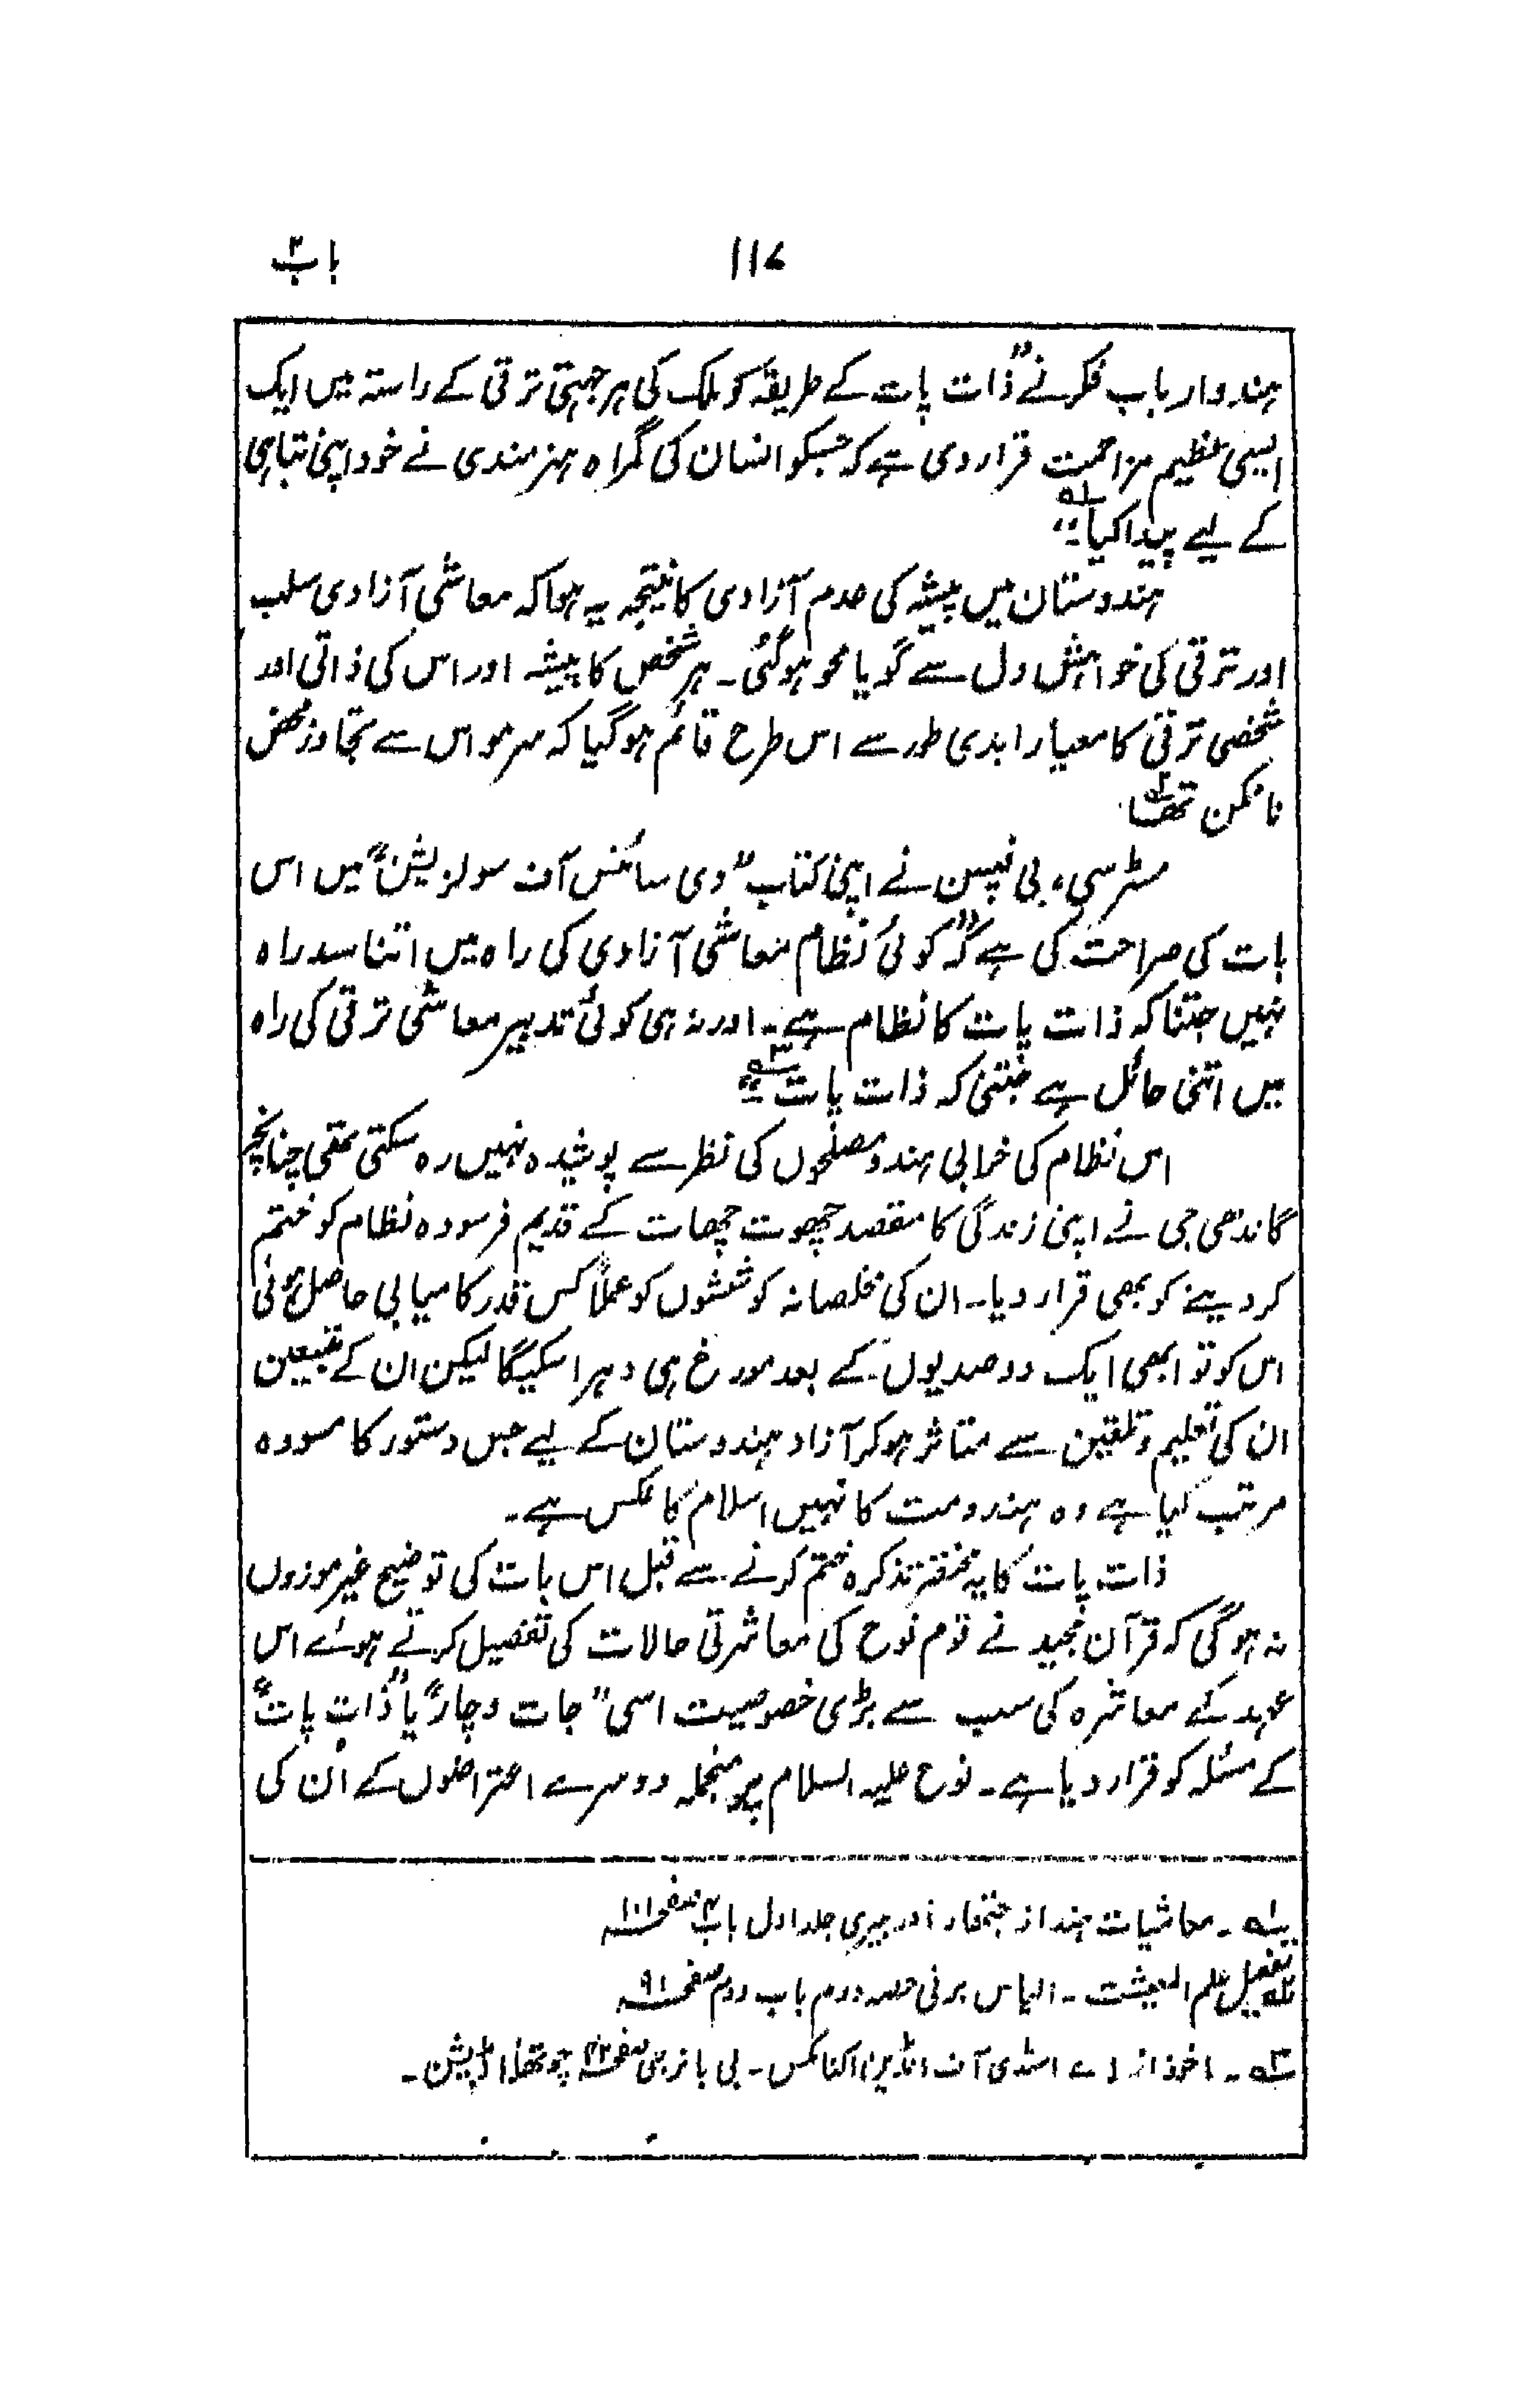 ۱۱۷ باب ۳
ہندو ارباب فکر نے "ذات پات کے طریقہ کو ملک کی ہر جہتی ترقی کے راستہ میں ایک
ایسی عظیم مزاحمت قرار دی ہے کہ جسکو انسان کی گمراہ ہنرمندی نے خود اپنی تباہی
کے لیے پیدا کیا۔" ۱ھ
ہندوستان میں پیشہ کی عدم آزادی کا نتیجہ یہ ہوا کہ معاشی آزادی سلب
اور ترقی کی خواہش دل سے گویا محو ہوگئی۔ ہر شخص کا پیشہ اور اس کی ذاتی اور
شخصی ترقی کا معیار ابدی طور سے اس طرح قائم ہوگیا کہ سرمو اس سے تجاوز محض
ناممکن تھا ۲ھ
مسٹر سی، بی نپسن نے اپنی کتاب "دی سائنس آف سولزیشن" میں اس
بات کی صراحت کی ہے کہ "کوئی نظام معاشی آزادی کی راہ میں اتنا سد راہ
نہیں جتنا کہ ذات پات کا نظام ہے۔ اور نہ ہی کوئی تدبیر معاشی ترقی کی راہ
میں اتنی حائل ہے جتنی کہ ذات پات۔" ۳ھ
اس نظام کی خرابی ہندو مصلحوں کی نظر سے پوشیدہ نہیں رہ سکتی تھی چنانچہ
گاندھی جی نے اپنی زندگی کا مقصد چھوت چھات کے قدیم فرسودہ نظام کو ختم
کر دینے کو بھی قرار دیا۔ ان کی مخلصانہ کوششوں کو عملاً کس قدر کامیابی حاصل ہوئی
اس کو تو ابھی ایک دو صدیوں کے بعد مورخ ہی دہرا سکیگا لیکن ان کے متبعین
ان کی تعلیم و تلقین سے متاثر ہوکر آزاد ہندوستان کے لیے جس دستور کا مسودہ
مرتب کیا ہے وہ ہندومت کا نہیں اسلام کا عکس ہے۔
ذات پات کا یہ مختصر تذکرہ ختم کرنے سے قبل اس بات کی توضیح غیر موزوں
نہ ہوگی کہ قرآن مجید نے قوم نوح کی معاشرتی حالات کی تفصیل کرتے ہوئے اس
عہد کے معاشرہ کی سب سے بڑی خصوصیت اسی "جات وچار" یا "ذات پات"
کے مسئلہ کو قرار دیا ہے۔ نوح علیہ السلام پر منجملہ دوسرے اعتراضوں کے اُن کی
۱ھ۔ معاشیات ہند از جتھار اور بیری جلد اول باب ۴ صفحہ ۱۰۱
۲ھ تفصیل علم المعیشت۔ الیاس برنی حصہ دوم باب دوم صفحہ ۹۱
۳ھ۔ اخوذ از اے اسٹدی آف انڈین اکنامکس۔ بی بانرجی صفحہ چوتھا اڈیشن۔